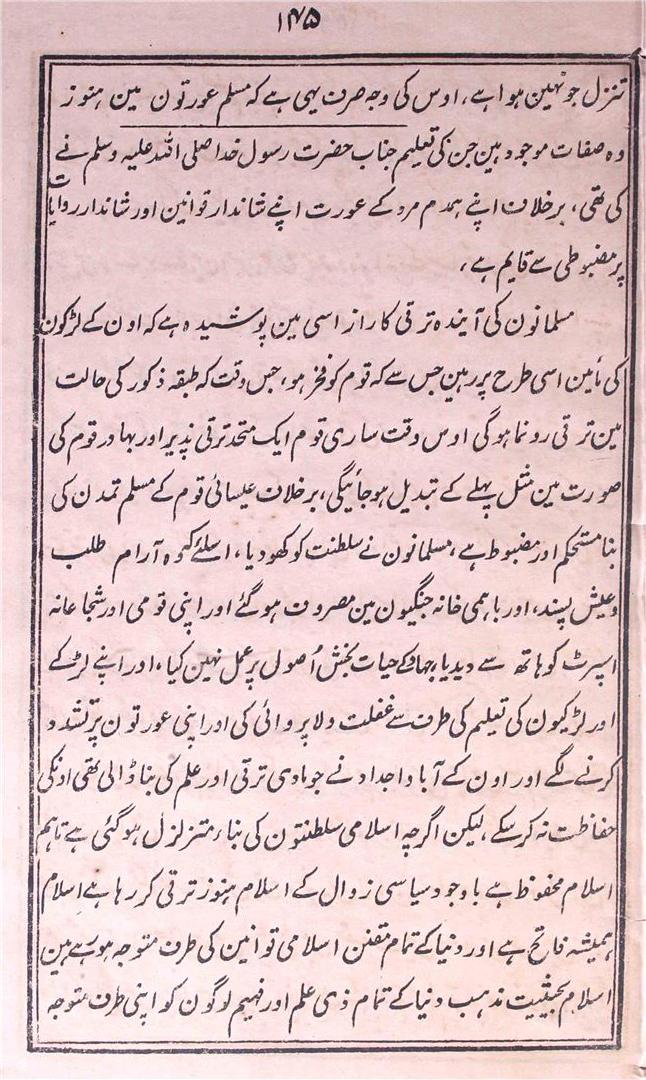 ۱۴۵
تنزل جو نہین ہوا ہے، اوس کی وجہ صرف یہی ہے کہ مسلم عورتون مین ہنوز
وہ صفات موجود ہین جن کی تعلیم جناب حضرت رسول خدا صلی اللہ علیہ وسلم نے
کی تھی، برخلاف اپنے ہمدم مرد کے عورت اپنے شاندار قوانین اور شاندار روایات
پر مضبوطی سے قایم ہے،
مسلمانون کی آیندہ ترقی کا راز اسی مین پوشیدہ ہے کہ اون کے لڑکون
کی مأین اسی طرح پر رہین جس سے کہ قوم کو فخر ہو، جس وقت کہ طبقہ ذکور کی حالت
مین ترقی رونما ہوگی اوس وقت ساری قوم ایک متحد ترقی پذیر اور بہادر قوم کی
صورت مین مثل پہلے کے تبدیل ہو جائیگی، برخلاف عیسائی قوم کے مسلم تمدن کی
بنا مستحکم اور مضبوط ہے، مسلمانون نے سلطنت کو کھو دیا، اسلئے کہ وہ آرام طلب
وعیش پسند، اور باہمی خانہ جنگیون مین مصروف ہو گئے اور اپنی قومی اور شجاعانہ
اسپرٹ کو ہاتھ سے دیدیا، جہاد کے حیات بخش اُصول پر عمل نہین کیا، اور اپنے لڑکے
اور لڑکیون کی تعلیم کی طرف سے غفلت ولا پروائی کی اور اپنی عورتون پر تشدد
کرنے لگے اور اون کے آبا واجداد نے جو مادی ترقی اور علم کی بنا ڈالی تھی اونکی
حفاظت نہ کر سکے، لیکن اگرچہ اسلامی سلطنتون کی بناء متزلزل ہو گئی ہے تاہم
اسلام محفوظ ہے باوجود سیاسی زوال کے اسلام ہنوز ترقی کر رہا ہے اسلام
ہمیشہ فاتح ہے اور دنیا کے تمام مقنن اسلامی قوانین کی طرف متوجہ ہو رہے ہین
اسلام بحیثیت مذہب دنیا کے تمام ذی علم اور فہیم لوگون کو اپنی طرف متوجہ